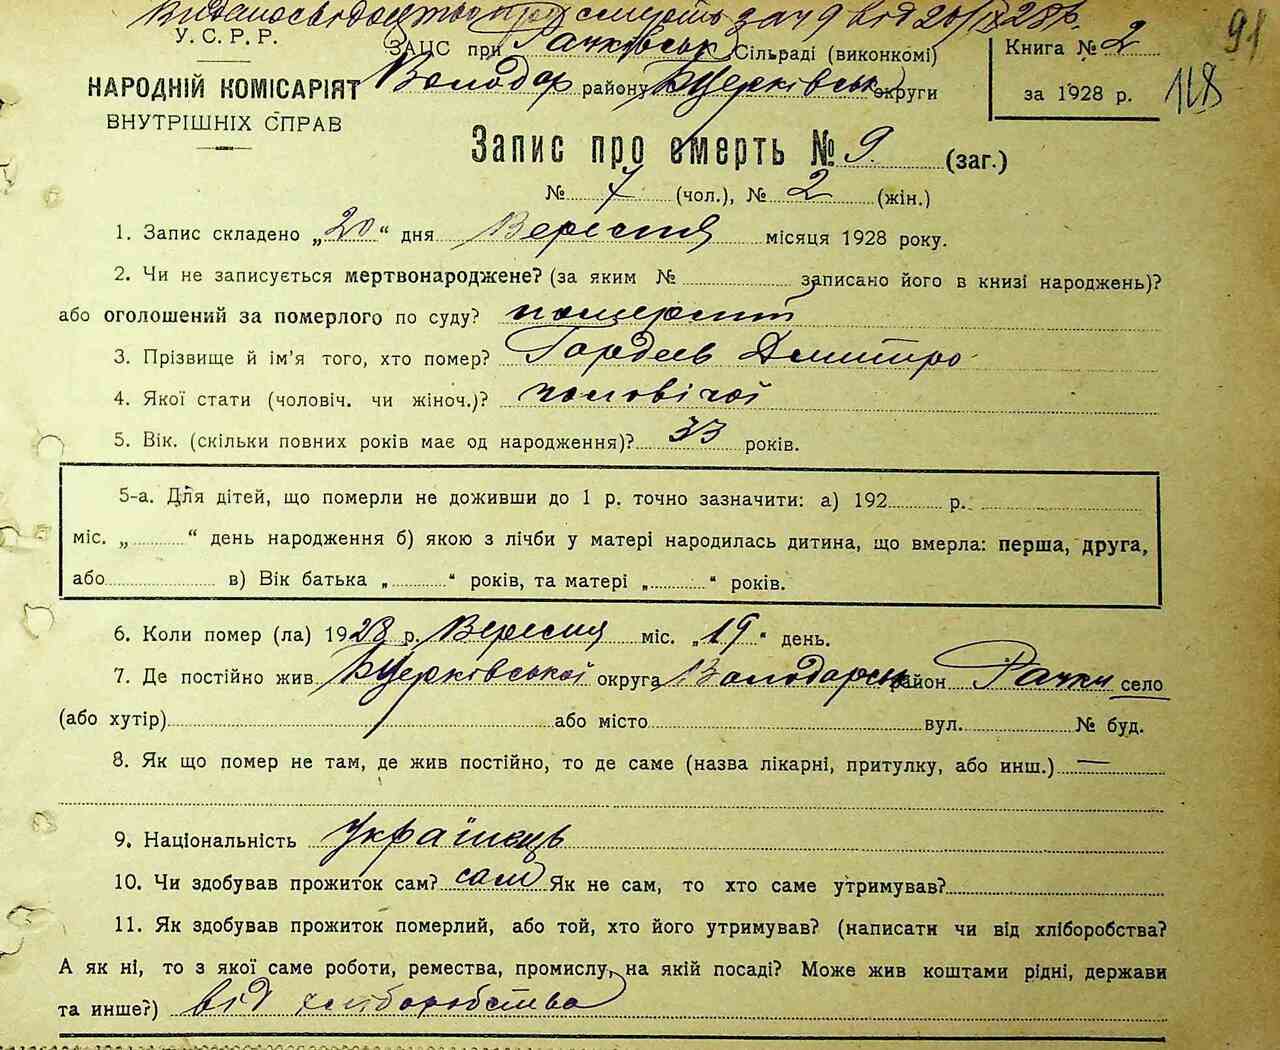 Видано свідоцтво про смерть за № 9 від 20/IX 28 р.
91
118
У.С.Р.Р.
НАРОДНІЙ КОМІСАРІЯТ
ВНУТРІШНІХ СПРАВ
ЗАЦС при Рачківськ Сільраді (виконкомі)
Володар району БЦерківськ округи
Книга № 2
за 1928 р.
Запис про смерть № 9. (заг.)
№ 7 (чол.), № 2 (жін.)
1. Запис складено „20“ дня Вересня місяця 1928 року.
2. Чи не записується мертвонароджене? (за яким № записано його в книзі народжень)?
або оголошений за померлого по суду?
3. Прізвище й ім'я того, хто помер? Гордеев Дмитро
4. Якої стати (чоловіч. чи жіноч.)? чоловічої
5. Вік. (скільки повних років має од народження)? 33 років.
5-а. Для дітей, що померли не доживши до 1 р. точно зазначити: а) 192 р.
міс. „ “ день народження б) якою з лічби у матері народилась дитина, що вмерла: перша, друга,
або в) Вік батька „ “ років, та матері „ “ років.
6. Коли помер (ла) 1928 р. Вересня міс. „19“ день.
7. Де постійно жив БЦерківської округа Володарськ район Рачки село
(або хутір) або місто вул. № буд.
8. Як що помер не там, де жив постійно, то де саме (назва лікарні, притулку, або инш.) —
9. Національність Українець
10. Чи здобував прожиток сам? сам Як не сам, то хто саме утримував?
11. Як здобував прожиток померлий, або той, хто його утримував? (написати чи від хліборобства?
А як ні, то з якої саме роботи, ремества, промислу, на якій посаді? Може жив коштами рідні, держави
та инше?) від хліборобства